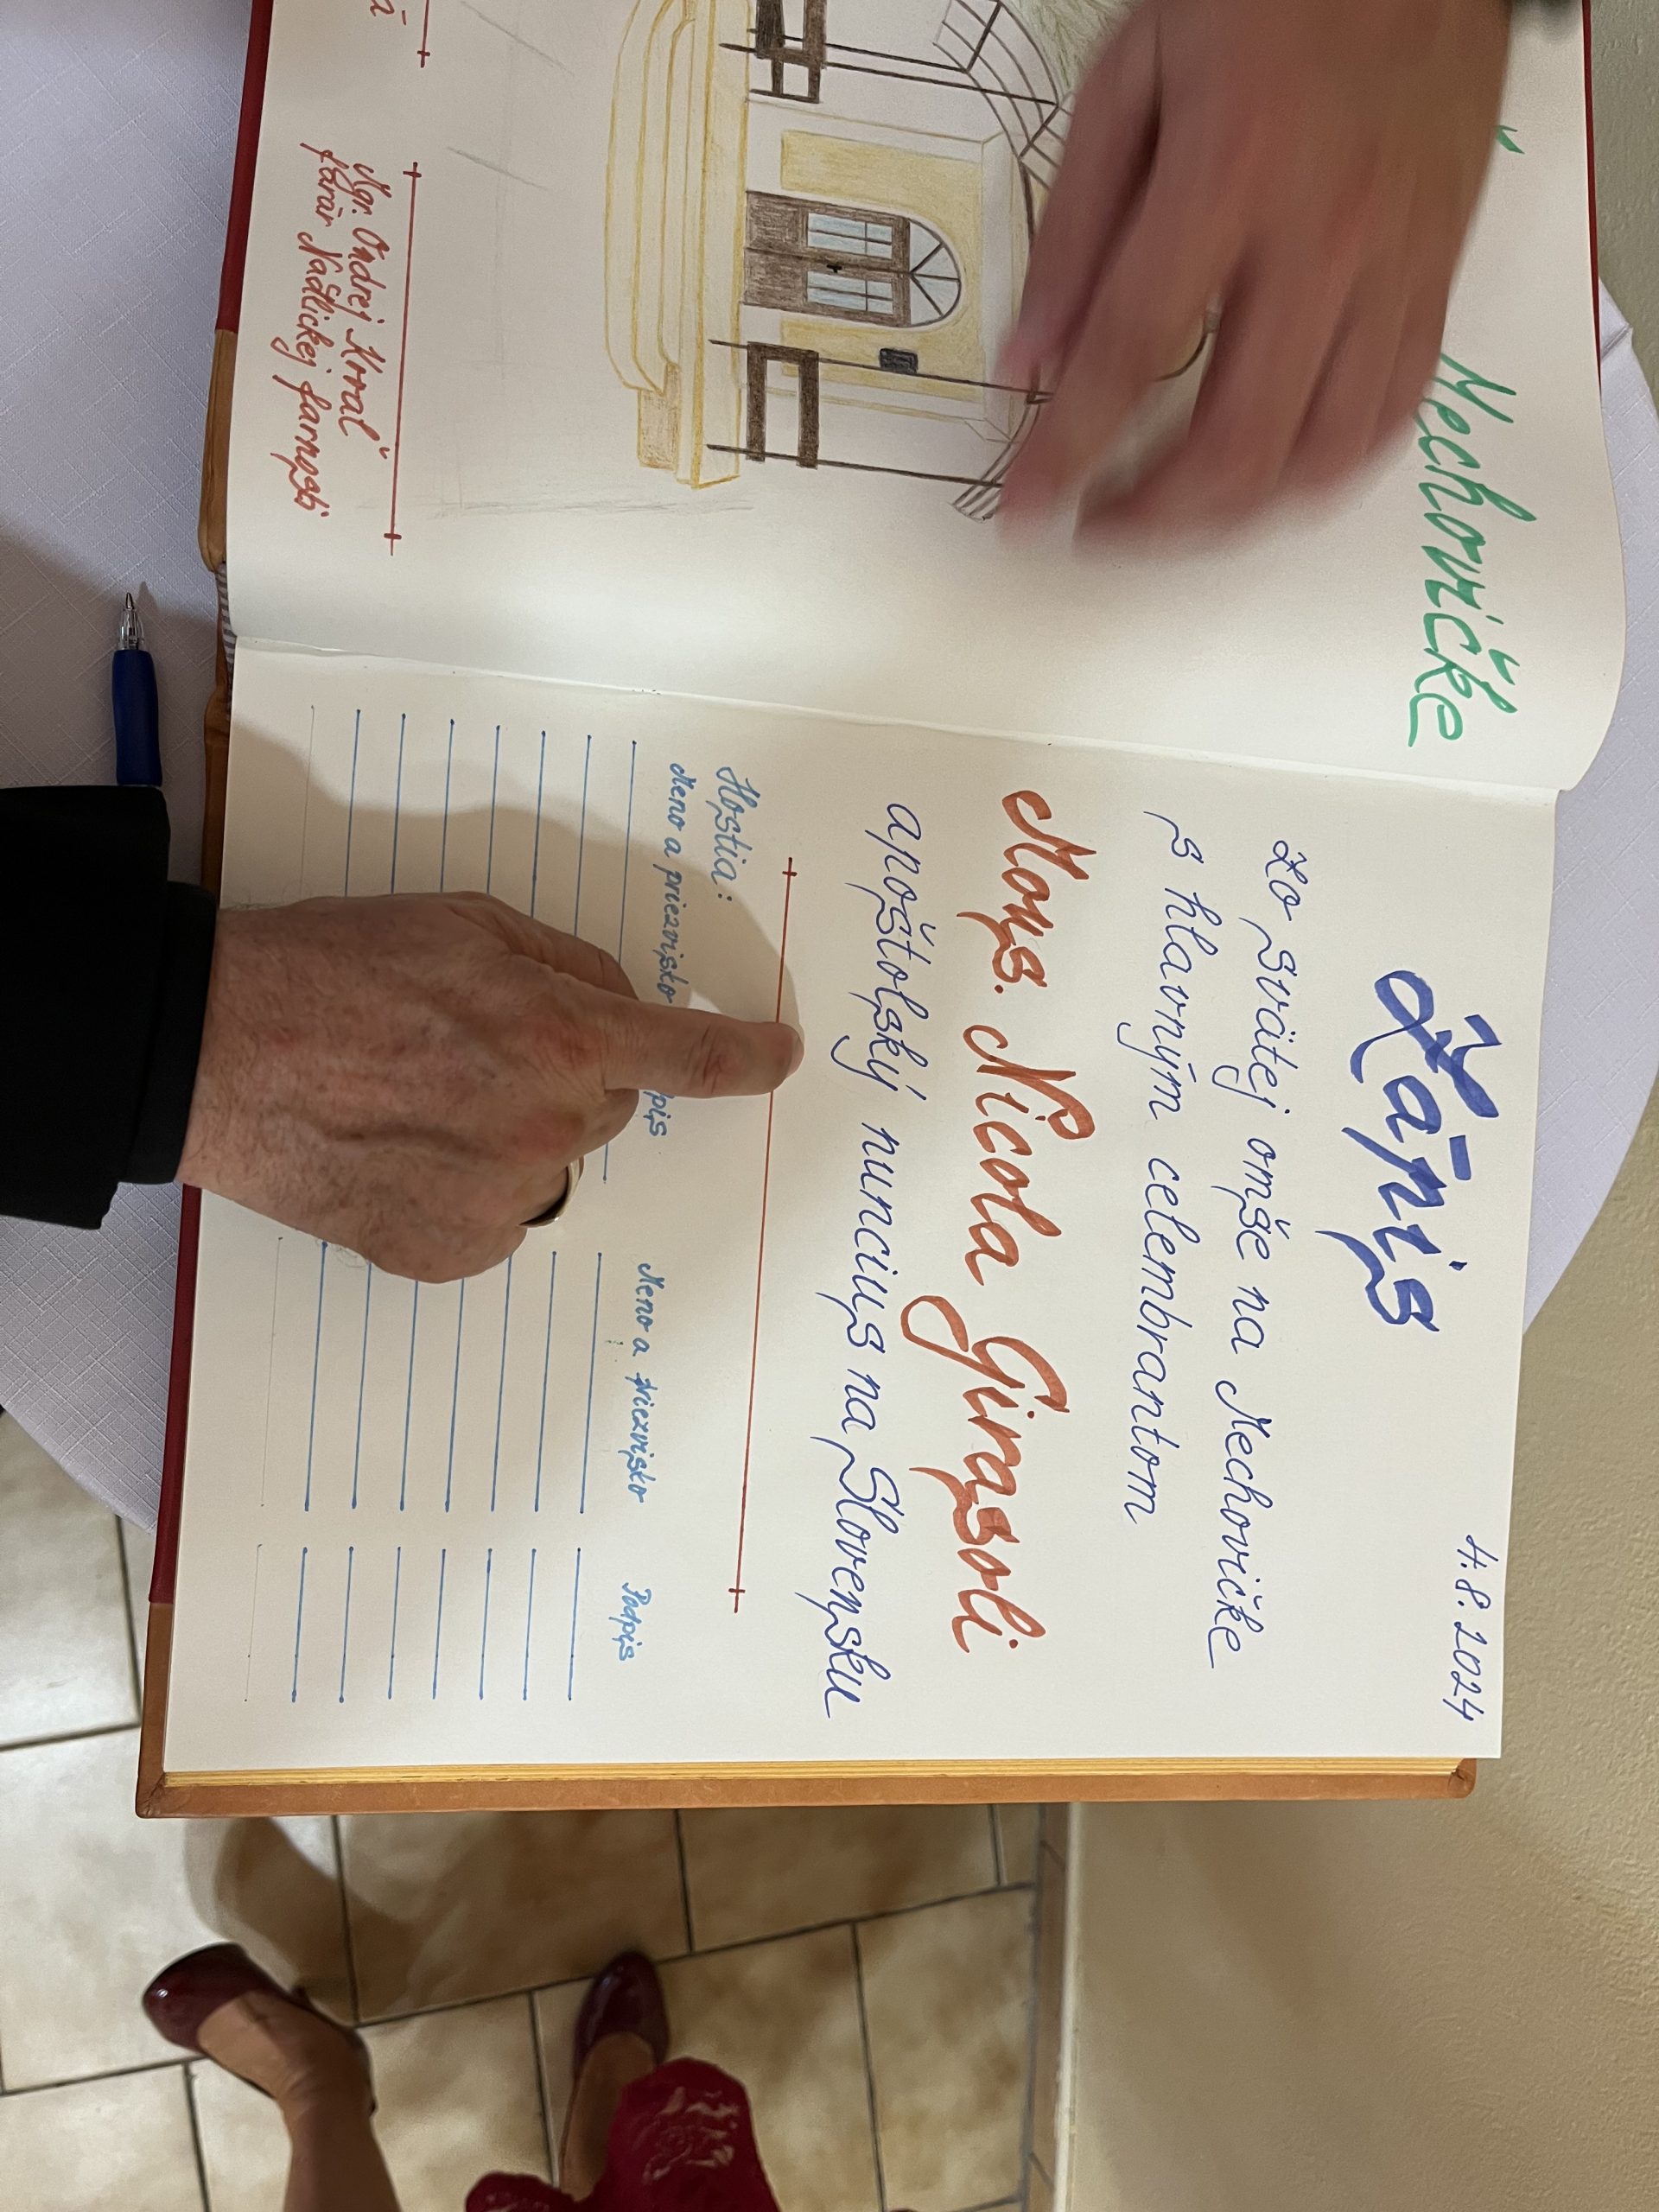 Mechovičke
Mgr. Ondrej Kráľ
farár Nadlickej farnosti
4.8.2024
Zápis
zo svätej omše na Mechovičke
s hlavným celembrantom
Mons. Nicola Girasoli
apoštolský nuncius na Slovensku
Hostia:
Meno a priezvisko
Meno a priezvisko Podpis